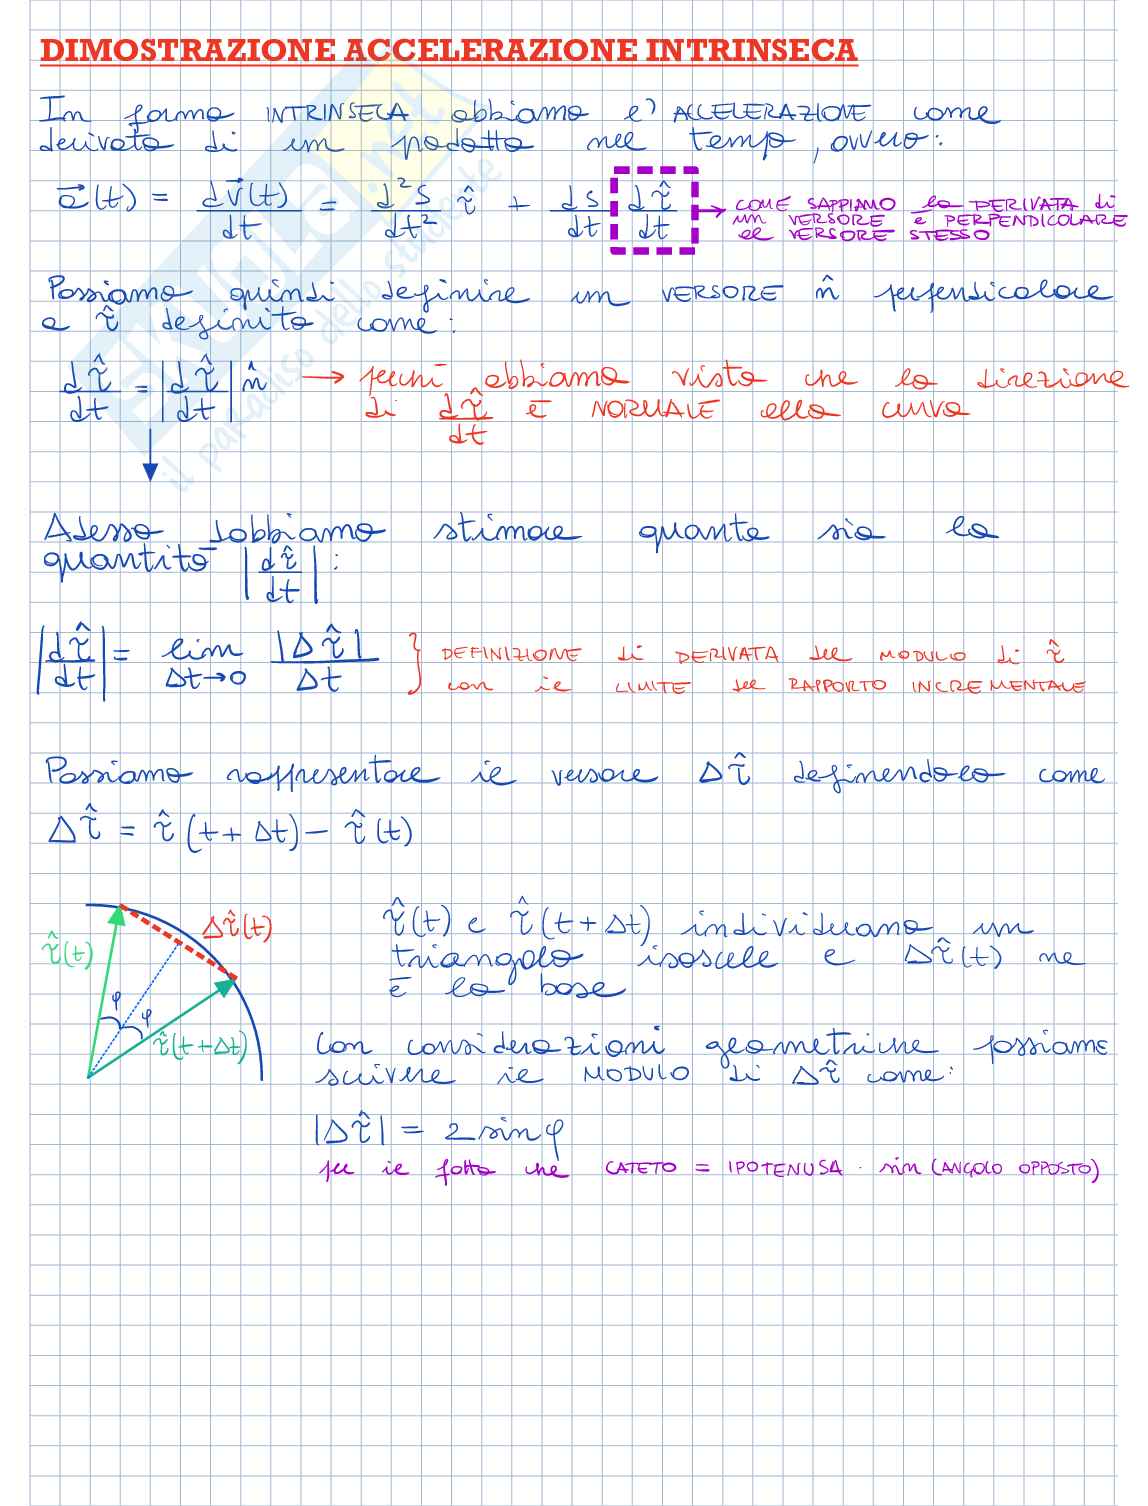 DIMOSTRAZIONE ACCELERAZIONE INTRINSECA
In forma INTRINSECA abbiamo l'ACCELERAZIONE come
derivata di un prodotto nel tempo, ovvero:
a⃗(t) = dv⃗(t)/dt = d²s/dt² τ̂ + ds/dt dτ̂/dt → COME SAPPIAMO la DERIVATA di
un VERSORE è PERPENDICOLARE
al VERSORE STESSO
Possiamo quindi definire un VERSORE n̂ perpendicolare
a τ̂ definito come:
dτ̂/dt = |dτ̂/dt| n̂ → perché abbiamo visto che la direzione
di dτ̂/dt è NORMALE alla curva
Adesso dobbiamo stimare quanto sia la
quantità |dτ̂/dt| :
|dτ̂/dt| = lim Δt→0 |Δτ̂|/Δt } DEFINIZIONE di DERIVATA del MODULO di τ̂
con il LIMITE del RAPPORTO INCREMENTALE
Possiamo rappresentare il versore Δτ̂ definendolo come
Δτ̂ = τ̂(t+Δt) - τ̂(t)
τ̂(t)
Δτ̂(t)
φ
φ
τ̂(t+Δt)
τ̂(t) e τ̂(t+Δt) individuano un
triangolo isoscele e Δτ̂(t) ne
è la base
Con considerazioni geometriche possiamo
scrivere il MODULO di Δτ̂ come:
|Δτ̂| = 2 sin φ
per il fatto che CATETO = IPOTENUSA · sin (ANGOLO OPPOSTO)
SKUOLA.net
il paradiso dello studente